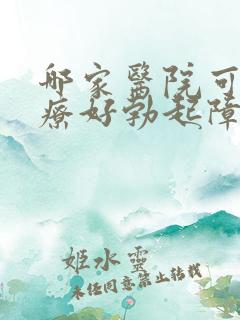 哪家醫院可
療好勃起障
姬水靈
未任同意禁止转载